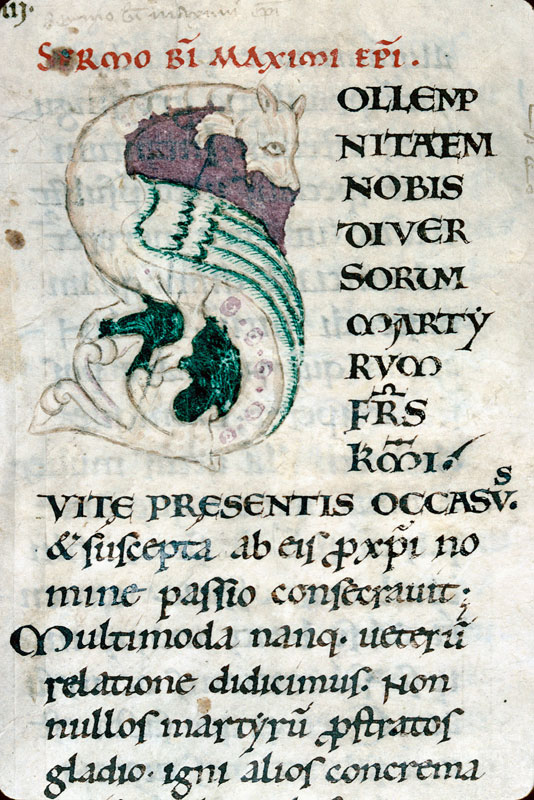 IIJ.
SERMO BI MAXIMI EPI.
OLLEMP
NITAEM
NOBIS
DIVER
SORUM
MARTY
RVM
FRS
KMI.
VITE PRESENTIS OCCASVS.
& suscepta ab eis p xpi no
mine passio consecrauit;
Multimoda nanq. ueterū
relatione didicimus. Non
nullos martyrū pstratos
gladio. igni alios concrema